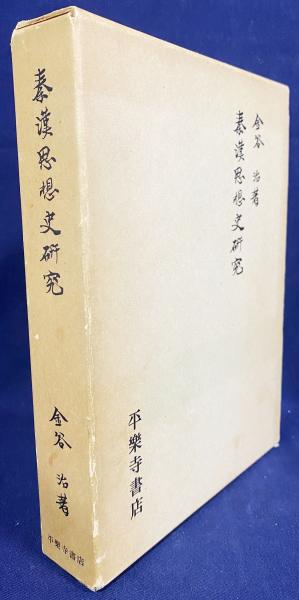 金谷 治著
秦漢思想史研究
平樂寺書店
秦漢思想史研究
金谷 治著
平樂寺書店